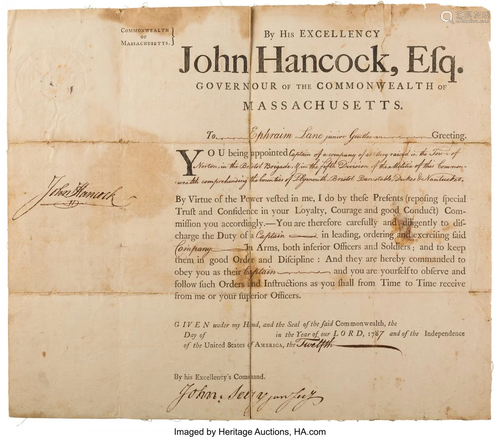 COMMONWEALTH
OF
MASSACHUSETTS.
By His EXCELLENCY
John Hancock, Esq.
GOVERNOUR OF THE COMMONWEALTH OF
MASSACHUSETTS.
To Ephraim Lane junior Gentleman Greeting.
YOU being appointed Captain of a company of raised in the Town of
Norton in the Bristol Brigade in the fifth Division of the Militia of this Common-
wealth comprehending the Counties of Plymouth Bristol Barnstable Dukes & Nantucket
By Virtue of the Power vested in me, I do by these Presents (reposing special
Trust and Confidence in your Loyalty, Courage and good Conduct) Com-
mission you accordingly.—You are therefore carefully and diligently to dis-
charge the Duty of a Captain in leading, ordering and exercising said
Company in Arms, both inferior Officers and Soldiers; and to keep
them in good Order and Discipline: And they are hereby commanded to
obey you as their Captain and you are yourself to observe and
follow such Orders and Instructions as you shall from Time to Time receive
from me or your superior Officers.
John Hancock
GIVEN under my Hand, and the Seal of the said Commonwealth, the
Day of in the Year of our LORD, 1787 and of the Independence
of the United States of AMERICA, the Twelfth
By his Excellency's Command.
John Avery jun Secy
Imaged by Heritage Auctions, HA.com